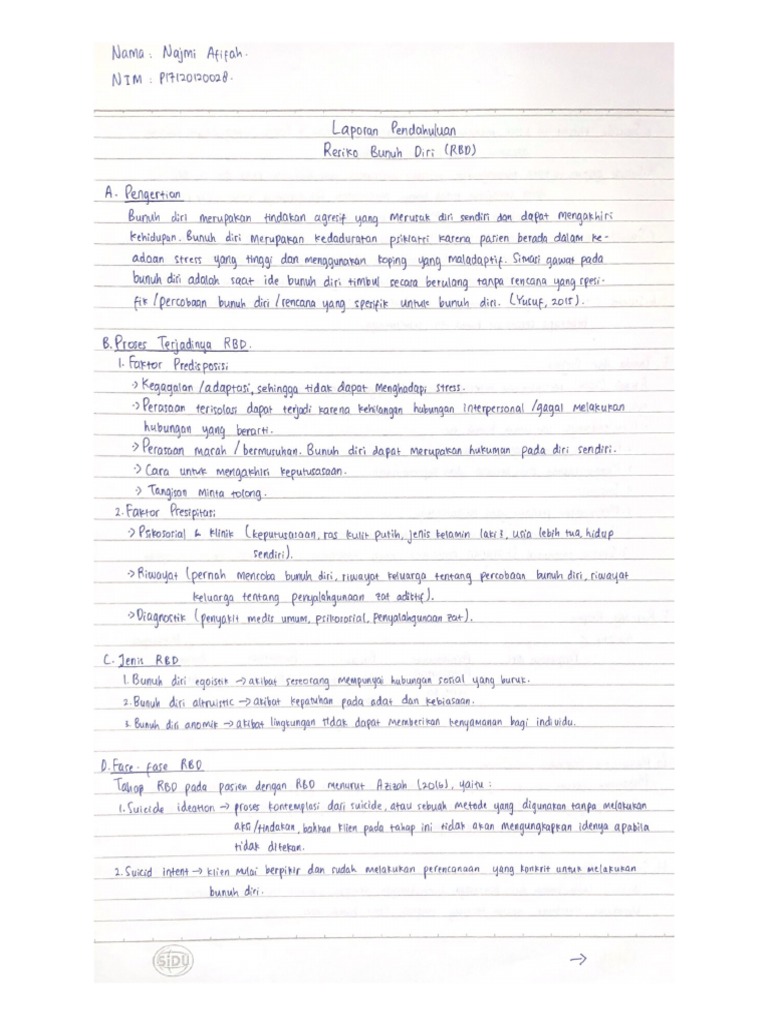 Nama : Najmi Afifah.
NIM : P17120120028.
Laporan Pendahuluan
Resiko Bunuh Diri (RBD)
A. Pengertian
Bunuh diri merupakan tindakan agresif yang merusak diri sendiri dan dapat mengakhiri
kehidupan. Bunuh diri merupakan kedaduratan psikiatri karena pasien berada dalam ke-
adaan stress yang tinggi dan menggunakan koping yang maladaptif. Situasi gawat pada
bunuh diri adalah saat ide bunuh diri timbul secara berulang tanpa rencana yang spesi-
fik /percobaan bunuh diri /rencana yang spesifik untuk bunuh diri. (Yusuf, 2015).
B. Proses Terjadinya RBD.
1. Faktor Predisposisi
-> Kegagalan /adaptasi, sehingga tidak dapat menghadapi stress.
-> Perasaan terisolasi dapat terjadi karena kehilangan hubungan interpersonal /gagal melakukan
hubungan yang berarti.
-> Perasaan marah / bermusuhan. Bunuh diri dapat merupakan hukuman pada diri sendiri.
-> Cara untuk mengakhiri keputusasaan.
-> Tangisan minta tolong.
2. Faktor Presipitasi
-> Psikososial & klinik (keputusasaan, ras kulit putih, jenis kelamin laki2, usia lebih tua, hidup
sendiri).
-> Riwayat (pernah mencoba bunuh diri, riwayat keluarga tentang percobaan bunuh diri, riwayat
keluarga tentang penyalahgunaan zat aditif).
-> Diagnostik (penyakit medis umum, psikososial, penyalahgunaan zat).
C. Jenis RBD
1. Bunuh diri egoistik -> akibat seseorang mempunyai hubungan sosial yang buruk.
2. Bunuh diri altruistic -> akibat kepatuhan pada adat dan kebiasaan.
3. Bunuh diri anomik -> akibat lingkungan tidak dapat memberikan kenyamanan bagi individu.
D. Fase-fase RBD
Tahap RBD pada pasien dengan RBD menurut Azizah (2016), yaitu :
1. Suicide ideation -> proses kontemplasi dari suicide, atau sebuah metode yang digunakan tanpa melakukan
aksi/tindakan, bahkan klien pada tahap ini tidak akan mengungkapkan idenya apabila
tidak ditekan.
2. Suicid intent -> klien mulai berpikir dan sudah melakukan perencanaan yang konkrit untuk melakukan
bunuh diri.
SiDU
->